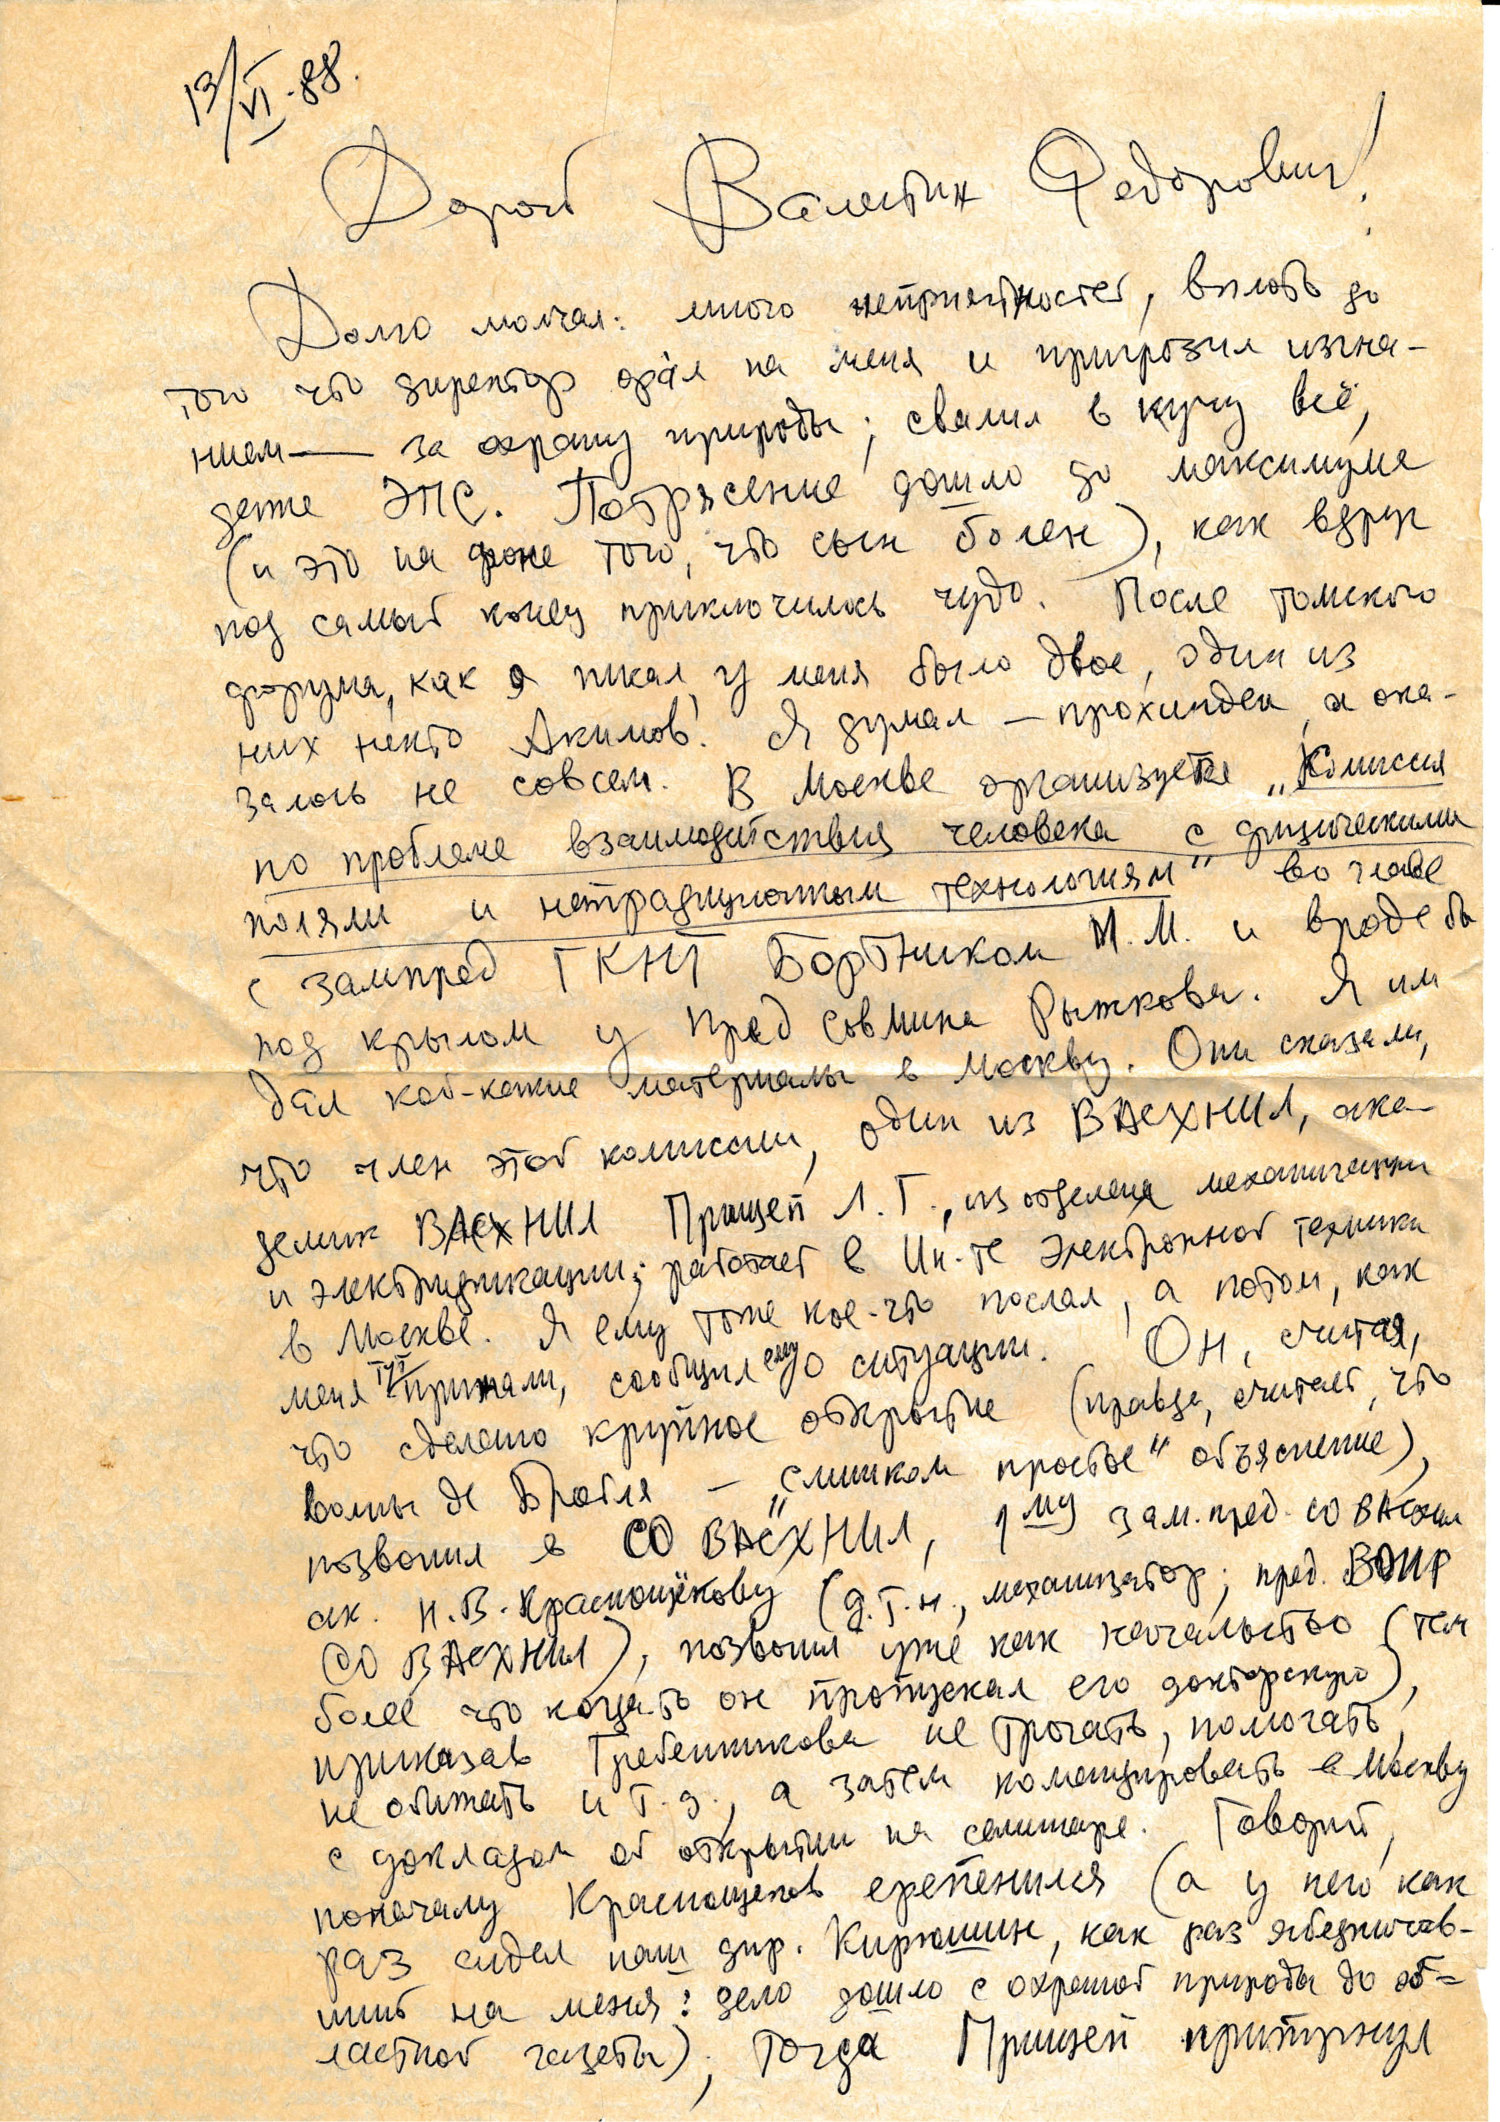 13/VI.88.
Дорогой Валентин Федорович!
Долго молчал: много неприятностей, вплоть до
того что директор орал на меня и пригрозил изгна-
нием — за охрану природы; свалил в кучу всё,
даже ЭПС. Потрясение дошло до максимума
(и это на фоне того, что сын болен), как вдруг
под самый конец приключилось чудо. После томского
форума, как я писал, у меня было двое, один из
них некто Акимов! Я думал — прохиндеи, а ока-
залось не совсем. В Москве организуется „Комиссия
по проблеме взаимодействия человека с физическими
полями и нетрадиционным технологиям" во главе
с зампред ГКНТ Бортником И.М. и вроде бы
под крылом у Пред Совмина Рыжкова. Я им
дал кой-какие материалы в Москву. Они сказали,
что член этой комиссии, один из ВАСХНИЛ, ака-
демик ВАСХНИЛ Прищеп Л.Г., из отделения механизации
и электрификации; работает в Ин-те Электронной техники
в Москве. Я ему тоже кое-что послал, а потом, как
меня тут прижали, сообщил ему о ситуации. Он, считая,
что сделано крупное открытие (правда, считает, что
волны де Бройля — „слишком простое" объяснение),
позвонил в СО ВАСХНИЛ, 1му зам. пред. СО ВАСХНИЛ
ак. Н.В. Краснощёкову (д.т.н., механизатор; пред. ВОИР
СО ВАСХНИЛ), позвонил уже как начальство (тем
более что когда-то он пропускал его докторскую),
приказав Гребенникова не трогать, помогать,
не обижать и т.д., а затем командировать в Москву
с докладом об открытии на семинаре. Говорит,
поначалу Краснощеков ерепенился (а у него как
раз сидел наш дир. Кирюшин, как раз ябедничав-
ший на меня: дело дошло с охраной природы до об-
ластной газеты); тогда Прищеп притурнул